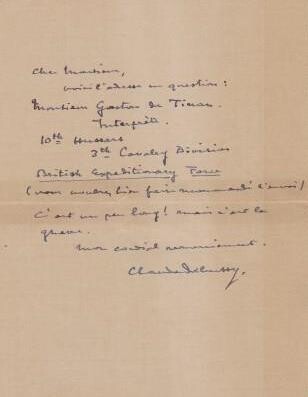 Cher Monsieur,
voici l'adresse en question :
Monsieur Gaston de Tinan.
Interprète.
10th Hussars
3th Cavalry Division
British Expeditionary Force
(vous voudrez bien faire recommandé l'envoi)
C'est un peu long ! mais c'est la
guerre.
Mon cordial remerciement.
Claude Debussy.